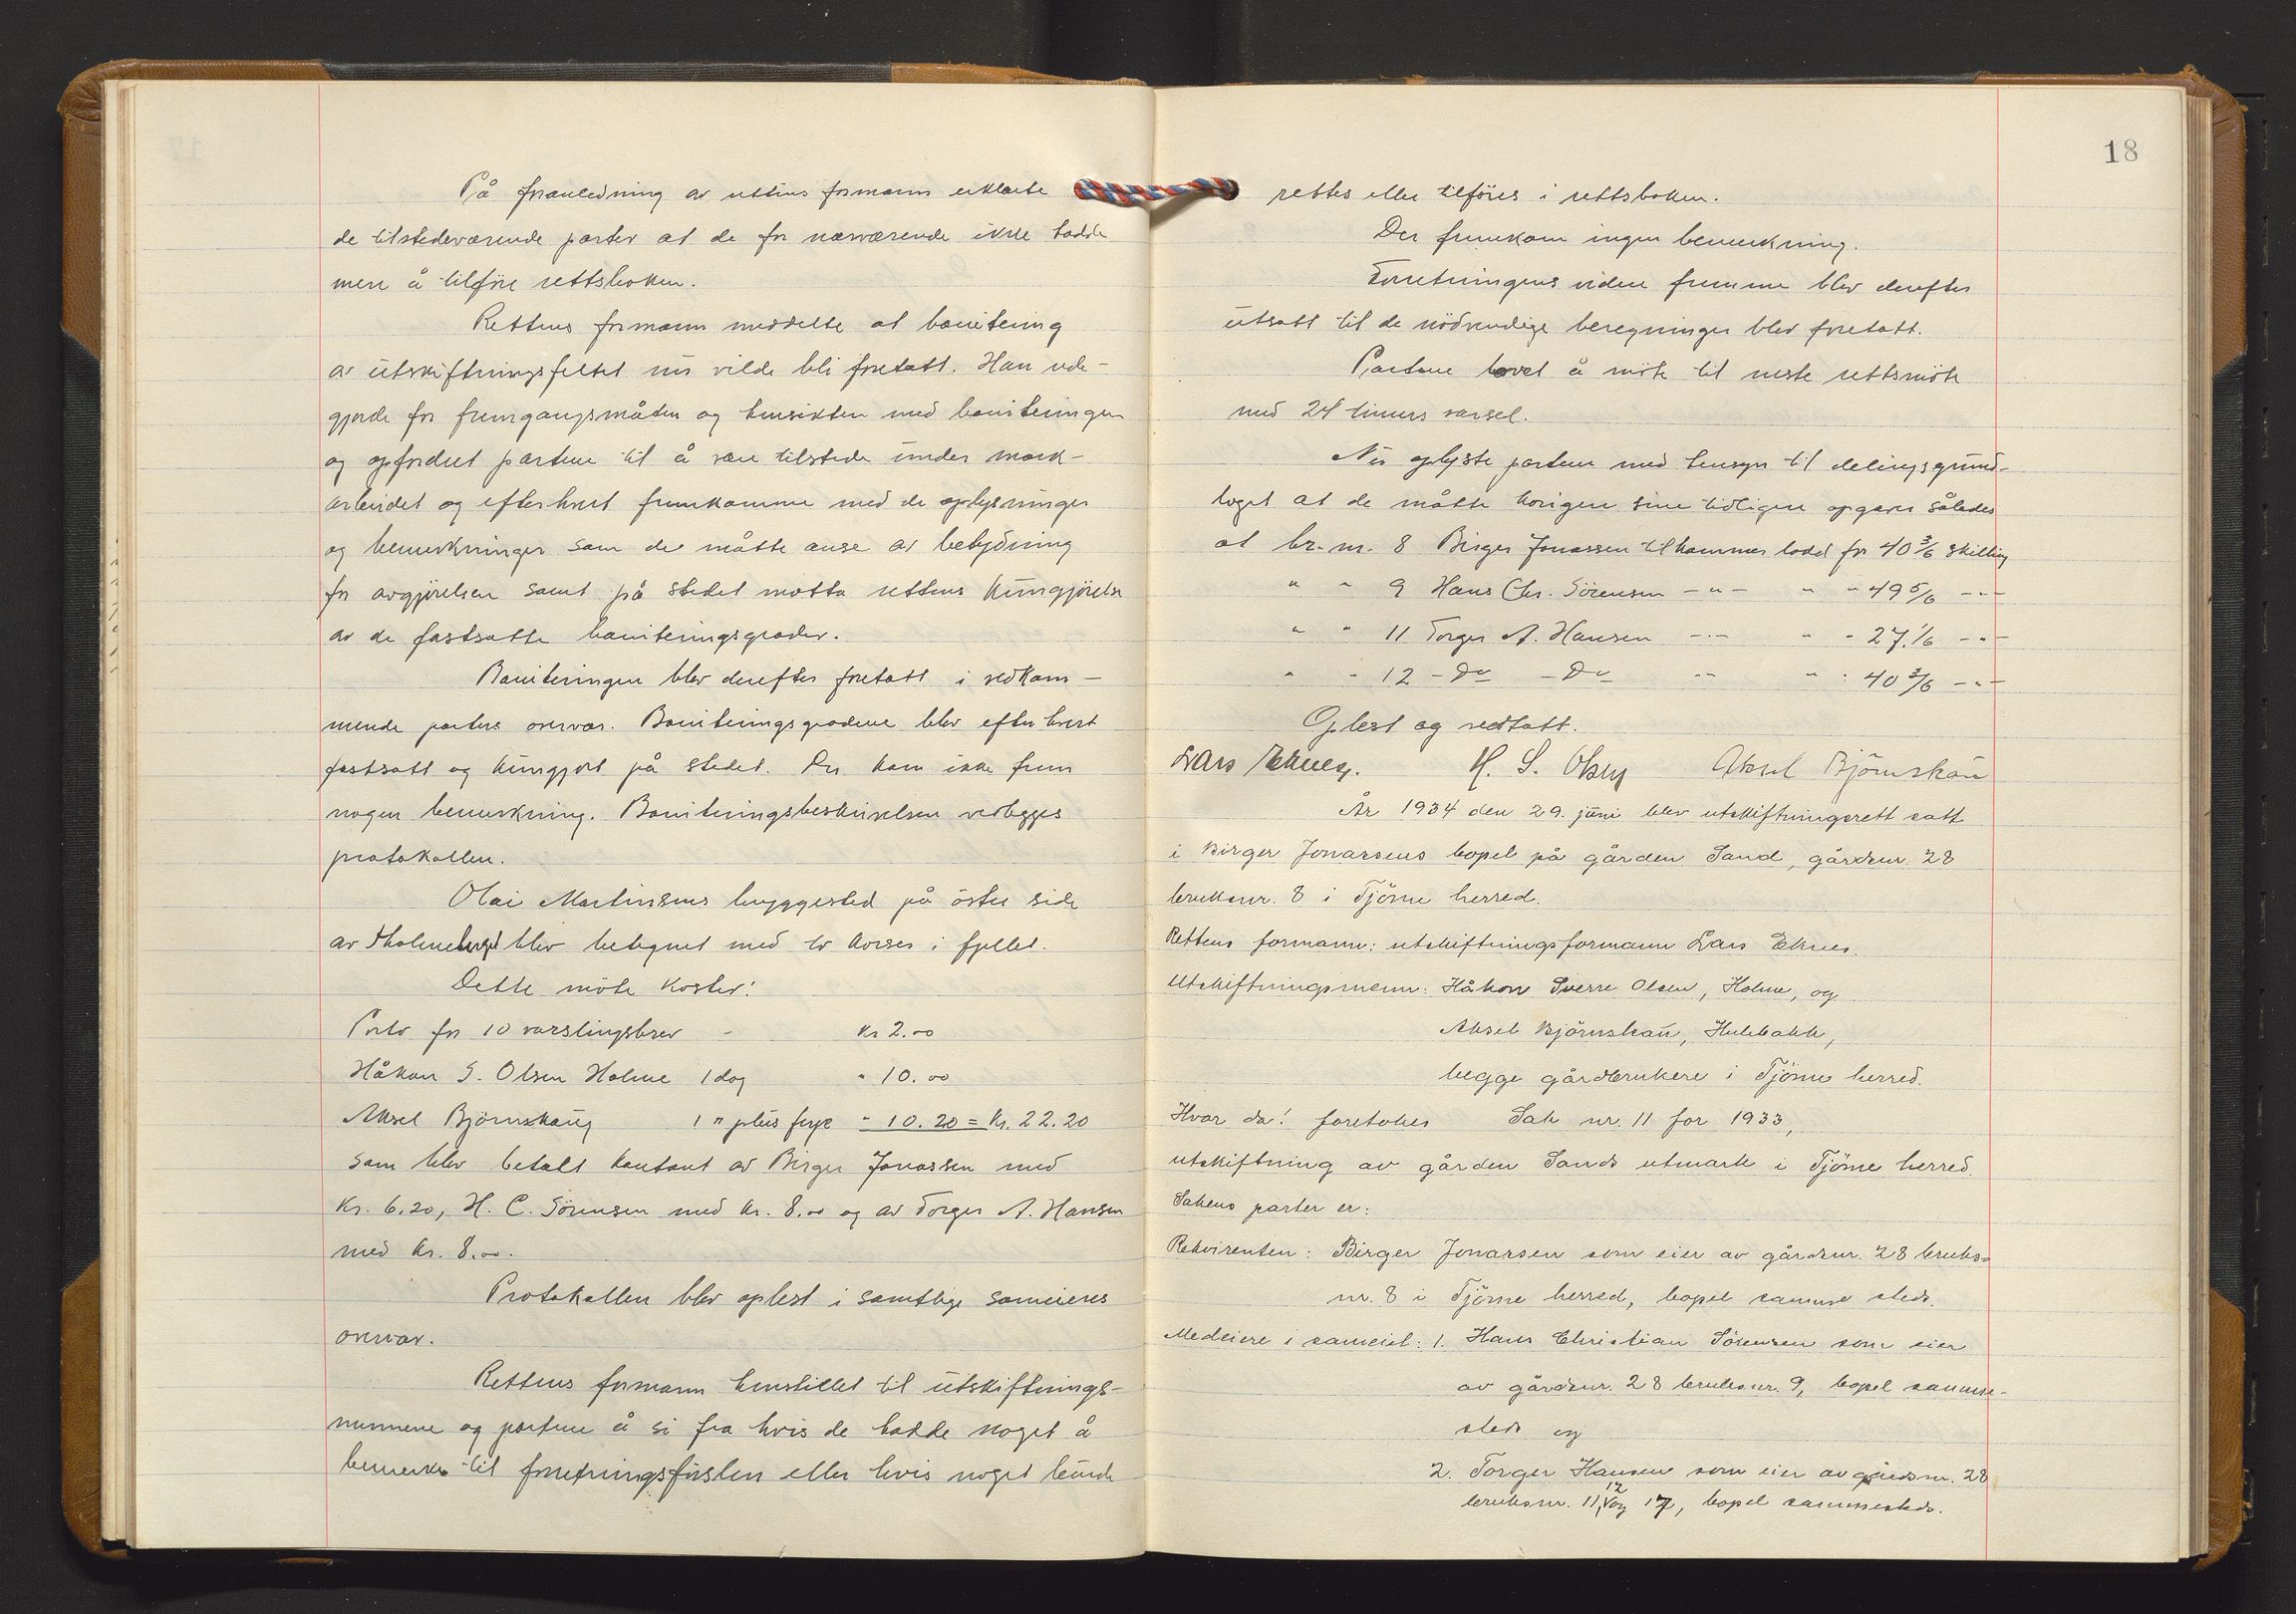 På foranledning av rettens formann erklærte
de tilstedeværende parter at de for nærværende ikke hadde
mere å tilføre rettsboken.
Rettens formann meddelte at bonitering
av utskiftningsfeltet nu vilde bli foretatt. Han rede-
gjorde for fremgangsmåten og hensikten med boniteringen
og opfordret partene til å være tilstede under mark-
arbeidet og efterhvert fremkomme med de oplysninger
og bemerkninger som de måtte anse av betydning
for avgjørelsen samt på stedet motta rettens kungjørelse
av de fastsatte boniteringsgrader.
Boniteringen blev derefter foretatt i vedkom-
mende parters overvær. Boniteringsgradene blev efterhvert
fastsatt og kungjort på stedet. Der kom ikke frem
nogen bemerkning. Boniteringsbeskrivelsen vedlegges
protokollen.
Olai Martinsens byggested på östre side
av Holmeberget blev betegnet med to korser i fjellet.
Dette möte koster:
Porto for 10 varslingsbrev - kr 2.00
Håkon S. Olsen Holme 1 dag " 10.00
Aksel Björnskaug 1 " plus ferje " 10.20 = kr. 22.20
som blev betalt kontant av Birger Jonassen med
kr. 6.20, H. C. Sörensen med kr. 8.00 og av Torger A. Hansen
med kr. 8.00.
Protokollen blev oplest i samtlige sameieres
overvær.
Rettens formann henstillet til utskiftnings-
mennene og partene å si fra hvis de hadde noget å
bemerke til forretningsførslen eller hvis noget burde
18
rettes eller tilföres i rettsboken.
Der fremkom ingen bemerkning.
Forretningens videre fremme blev derefter
utsatt til de nödvendige beregninger blev foretatt.
Partene lovet å möte til neste rettsmöte
med 24 timers varsel.
Nu oplyste partene med hensyn til delingsgrund-
laget at de måtte korrigere sine tidligere opgaver således
at br.nr. 8 Birger Jonassen tilkommer lodd for 40 3/6 skilling
" " 9 Hans Chr. Sörensen - " - " " 49 5/6 - " -
" " 11 Torger A. Hansen - " - " " 27 1/6 - " -
" " 12 - Do - Do - " - " " 40 3/6 - " -
Oplest og vedtatt.
Lars Eknes. H. S. Olsen Aksel Björnskau
År 1934 den 29. juni blev utskiftningsrett satt
i Birger Jonassens bopel på gården Sand, gårdsnr. 28
bruksnr. 8 i Tjöme herred.
Rettens formann: utskiftningsformann Lars Eknes.
Utskiftningsmenn: Håkon Sverre Olsen, Holme, og
Aksel Björnskau, Hulebakk,
begge gårdbrukere i Tjöme herred.
Hvor da! foretokes Sak nr. 11 for 1933,
utskiftning av gården Sands utmark i Tjöme herred.
Sakens parter er:
Rekvirenten: Birger Jonassen som eier av gårdsnr. 28 bruks-
nr. 8 i Tjöme herred, bopel samme steds.
Medeiere i sameiet: 1. Hans Christian Sörensen som eier
av gårdsnr. 28 bruksnr. 9, bopel samme-
steds og
2. Torger Hansen som eier av gårdsnr. 28
bruksnr. 11, 12 og 17, bopel sammesteds.